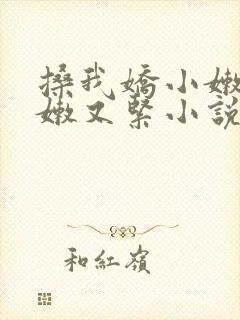 搡我嬌小嫩
嫩又緊小說
和紅嶺